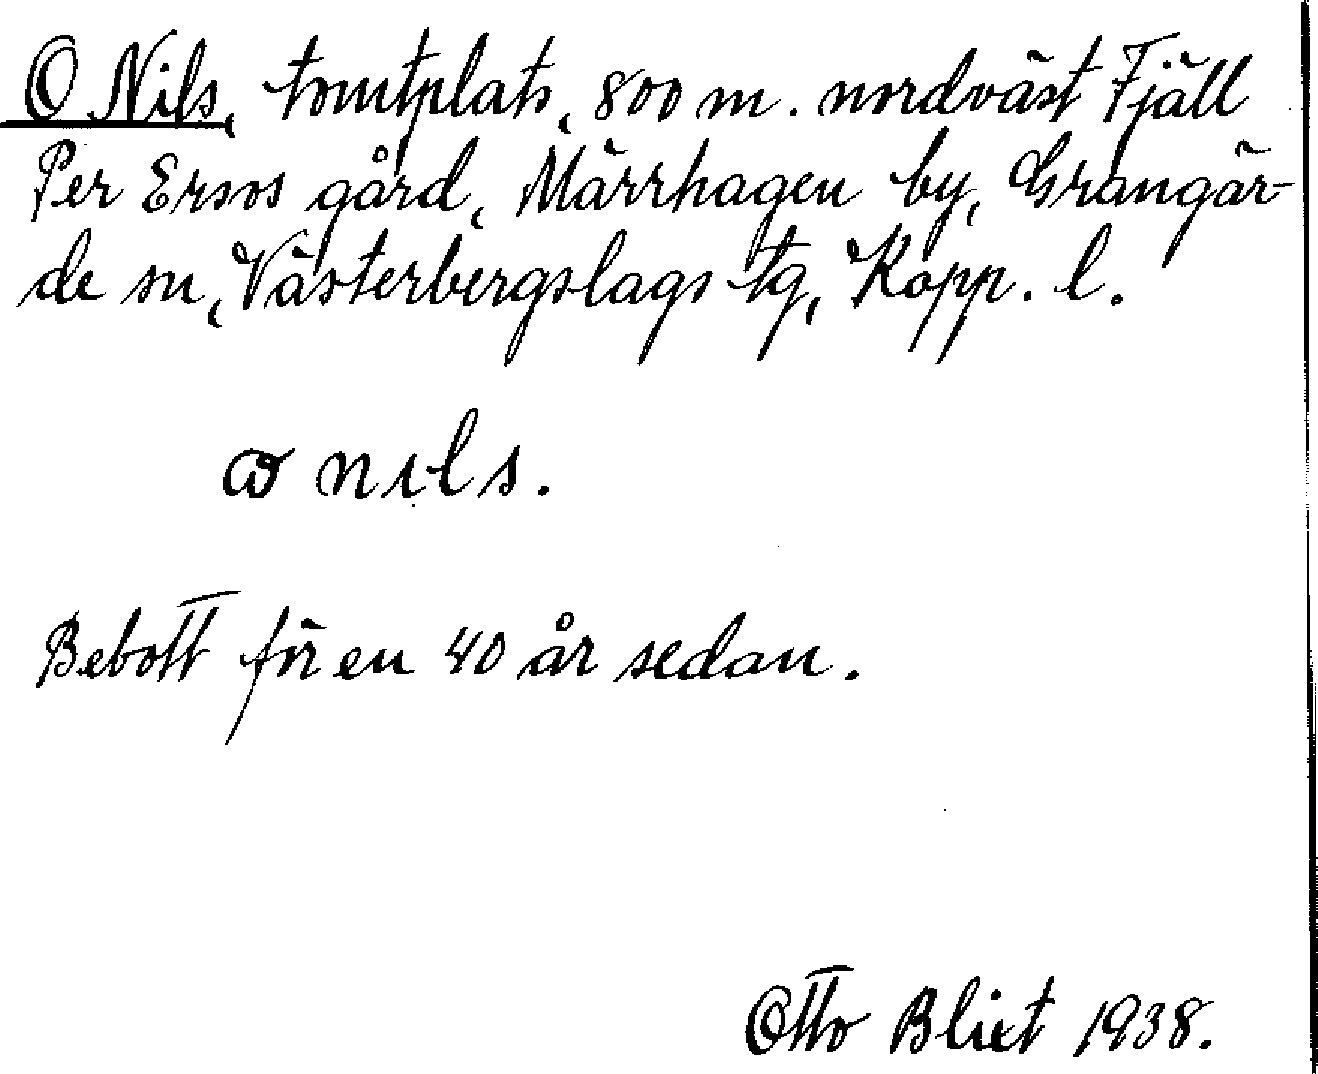 O Nils, tomtplats, 800 m. nordväst Fjäll
Per Ersos gård, Märrhagen by, Grangär-
de sn, Västerbergslags tg, Kopp. l.
ω nɩls.
Bebott för en 40 år sedan.
Otto Blixt 1938.